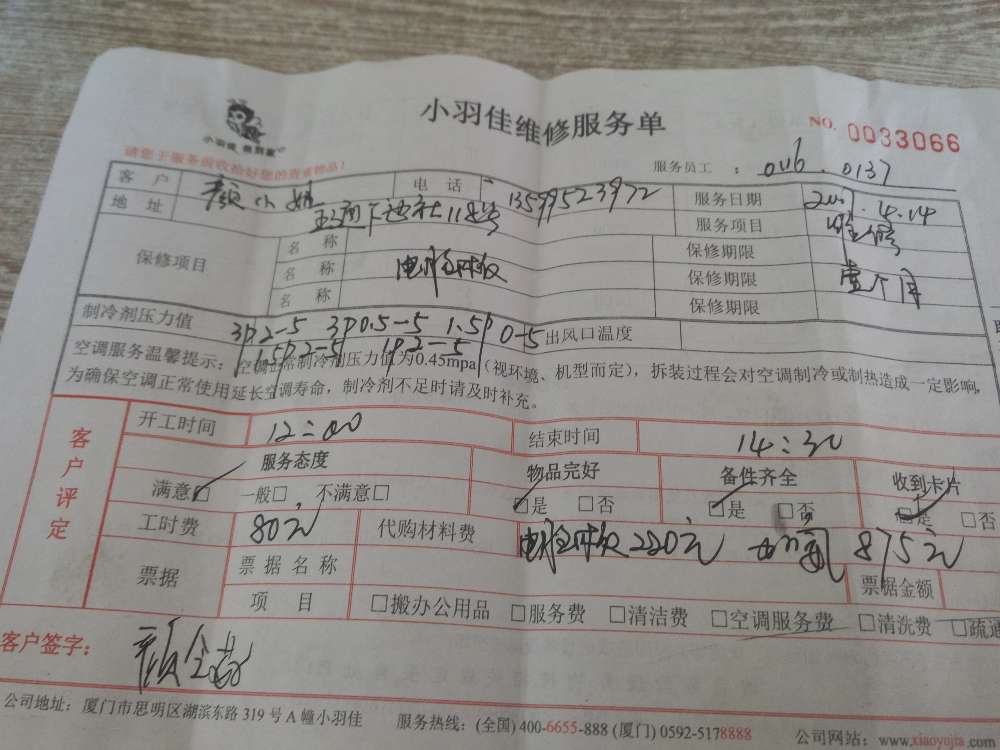 小羽佳维修服务单
小羽佳 做到家
NO. 0033066
请您于服务前收拾好您的贵重物品！
服务员工：016.0137
客户 颜小姐 电话 13599523972 服务日期 4.14
地址 118号 服务项目 维修
保修项目 名称 保修期限
名称 电脑板 保修期限 壹个月
名称 保修期限
制冷剂压力值 3P.2-5 3P0.5-5 1.5P 0-5 出风口温度
1.5P.2-5 1P2-5
空调服务温馨提示：空调正常制冷剂压力值为0.45mpa（视环境、机型而定），拆装过程会对空调制冷或制热造成一定影响，
为确保空调正常使用延长空调寿命，制冷剂不足时请及时补充。
客户评定
开工时间 12:00 结束时间 14:30
服务态度 物品完好 备件齐全 收到卡片
满意□ 一般□ 不满意□ □是 □否 □是 □否 □是 □否
工时费 80元 代购材料费 220元 875元
票据 票据名称 票据金额
项目 □搬办公用品 □服务费 □清洁费 □空调服务费 □清洗费 □疏通
客户签字：颜
公司地址：厦门市思明区湖滨东路 319 号 A 幢小羽佳 服务热线：(全国) 400-6655-888 (厦门) 0592-5178888 公司网站：www.xiaoyujia.com